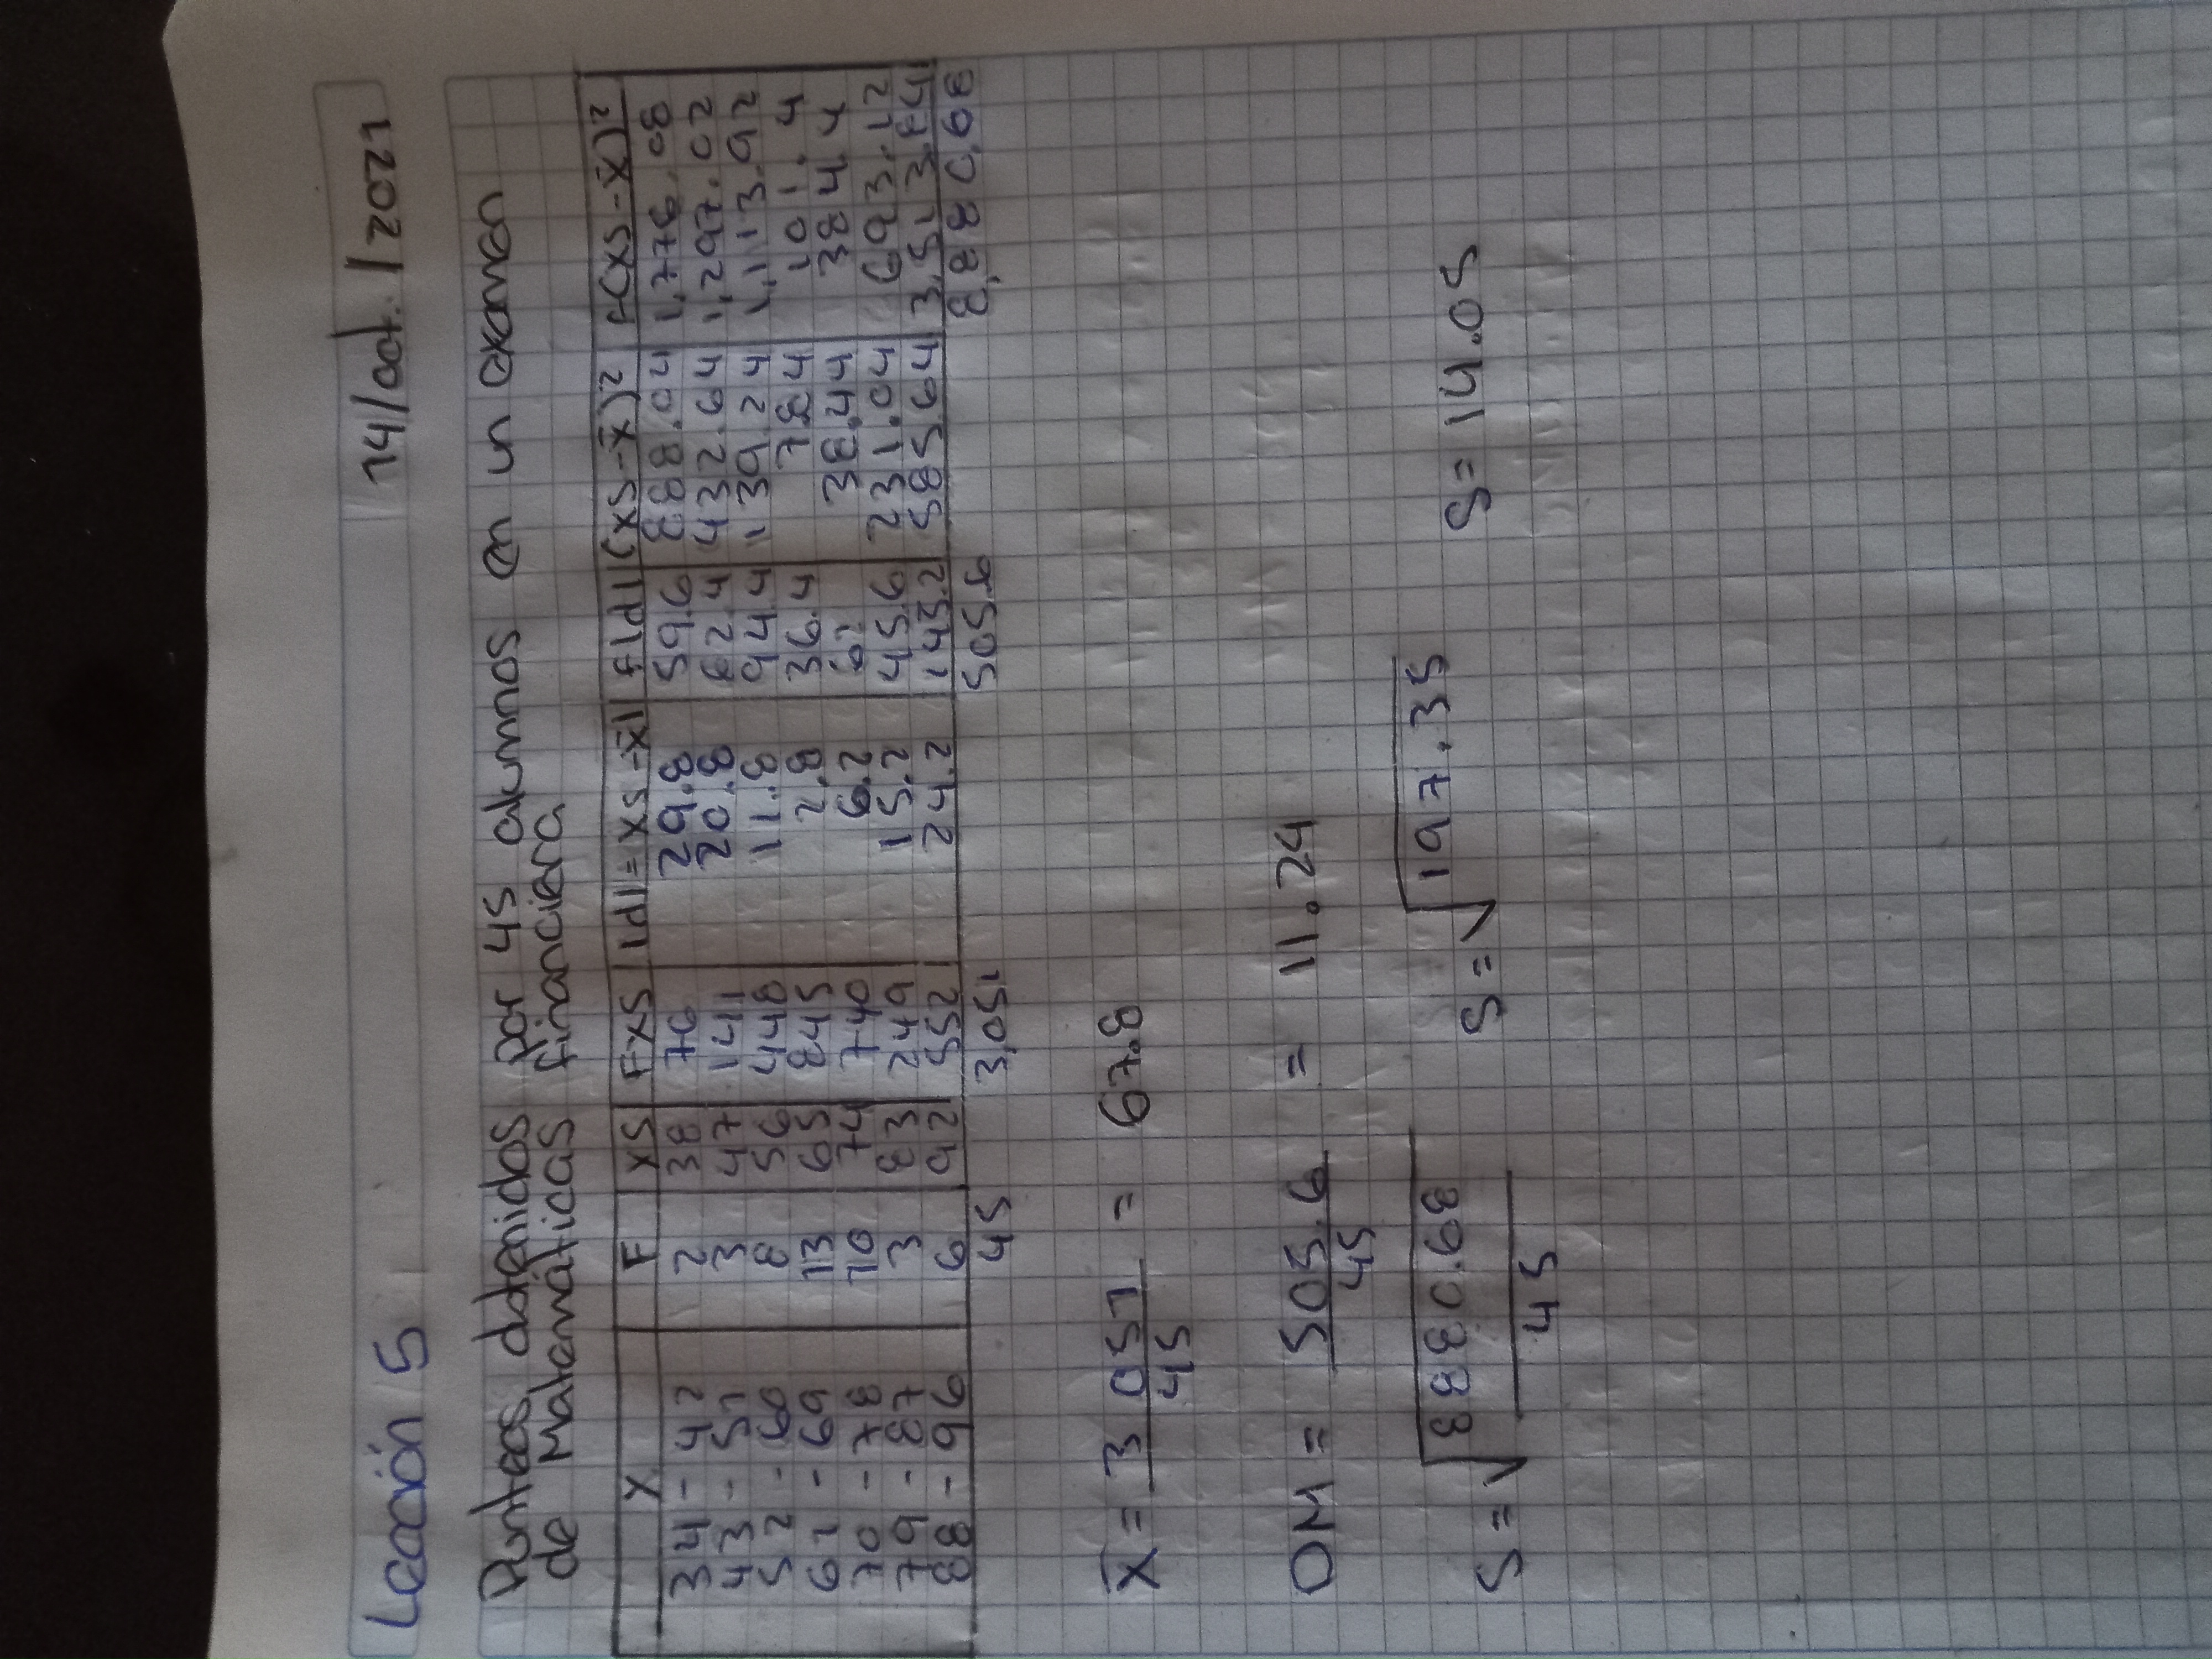 Lección 5
14/oct./2021
Punteos obtenidos por 45 alumnos en un examen
de Matemáticas financiera
X F XS FXS |d|=XS-X̄| f|d| (XS-X̄)² f(XS-X̄)²
34-42 2 38 76 29.8 59.6 888.04 1,776.08
43-51 3 47 141 20.8 62.4 432.64 1,297.02
52-60 8 56 448 11.8 94.4 139.24 1,113.92
61-69 13 65 845 2.8 36.4 7.84 101.4
70-78 10 74 740 6.2 62 38.44 384.4
79-87 3 83 249 15.2 45.6 231.04 693.12
88-96 6 92 552 24.2 145.2 585.64 3,513.84
45 3,051 505.6 8,880.68
X̄ = 3051/45 = 67.8
DM = 505.6/45 = 11.24
S = √8880.68/45 S = √197.35 S = 14.05